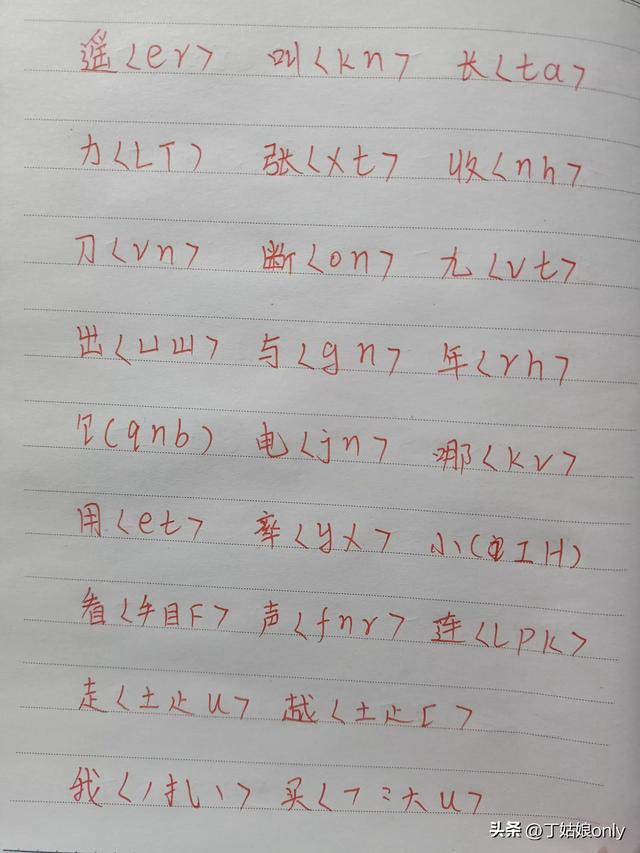 遥<er> 叫<kn> 长<ta>
力<LT) 张<xt> 收<nh>
刀<vn> 断<on> 九<vt>
出<凵山> 与<gn> 年<rh>
(qnb) 电<jn> 哪<kv>
用<et> 率<yx> 小(IH)
看<手目F> 声<fnr> 连<LPK>
走<土止u> 越<土止[>
我<丿扎乀丶> 买<乛⺀大u>
头条 @丁姑娘only